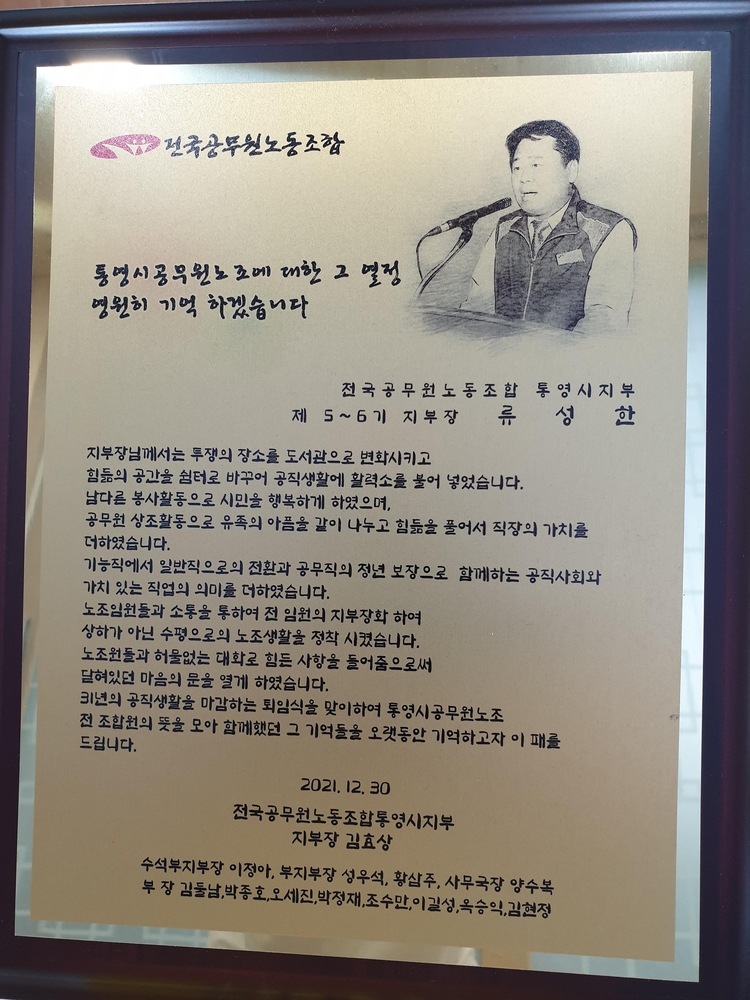 전국공무원노동조합
통영시공무원노조에 대한 그 열정
영원히 기억 하겠습니다
전국공무원노동조합 통영시지부
제 5~6기 지부장 류 성 한
지부장님께서는 투쟁의 장소를 도서관으로 변화시키고
힘듦의 공간을 쉼터로 바꾸어 공직생활에 활력소를 불어 넣었습니다.
남다른 봉사활동으로 시민을 행복하게 하였으며,
공무원 상조활동으로 유족의 아픔을 같이 나누고 힘듦을 풀어서 직장의 가치를
더하였습니다.
기능직에서 일반직으로의 전환과 공무직의 정년 보장으로 함께하는 공직사회와
가치 있는 직업의 의미를 더하였습니다.
노조임원들과 소통을 통하여 전 임원의 지부장화 하여
상하가 아닌 수평으로의 노조생활을 정착 시켰습니다.
노조원들과 허물없는 대화로 힘든 사항을 들어줌으로써
닫혀있던 마음의 문을 열게 하였습니다.
31년의 공직생활을 마감하는 퇴임식을 맞이하여 통영시공무원노조
전 조합원의 뜻을 모아 함께했던 그 기억들을 오랫동안 기억하고자 이 패를
드립니다.
2021. 12. 30
전국공무원노동조합통영시지부
지부장 김효상
수석부지부장 이정아, 부지부장 성우석, 황삼주, 사무국장 양수복
부 장 김둘남,박종호,오세진,박정재,조수만,이길성,옥승익,김현정